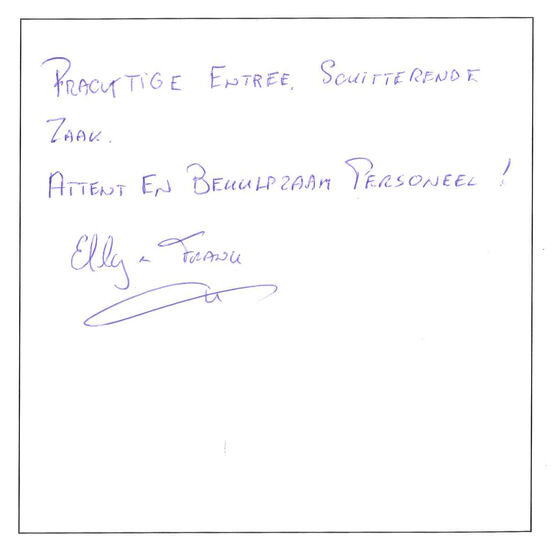 PRACHTIGE ENTREE. SCHITTERENDE
ZAAK.
ATTENT EN BEHULPZAAM PERSONEEL!
Elly & FRANK